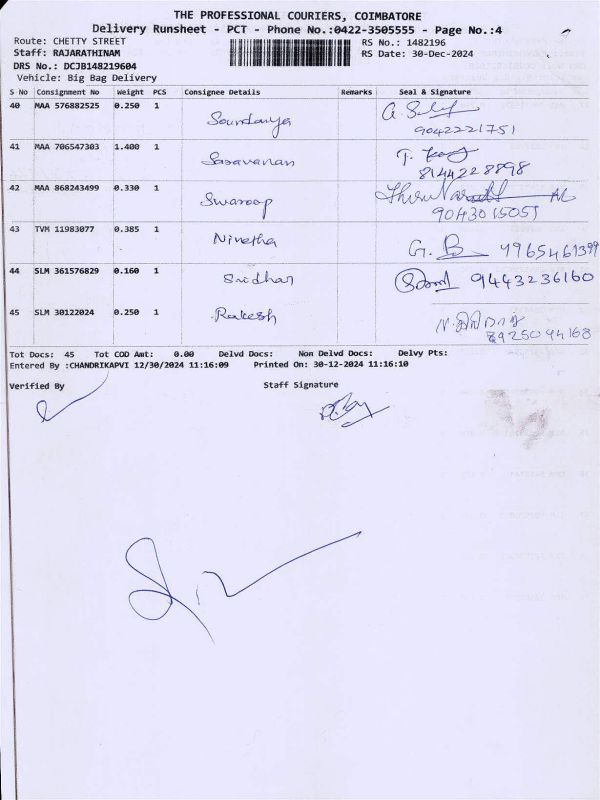 THE PROFESSIONAL COURIERS, COIMBATORE
Delivery Runsheet - PCT - Phone No.:0422-3505555 - Page No.:4
Route: CHETTY STREET RS No.: 1482196
Staff: RAJARATHINAM RS Date: 30-Dec-2024
DRS No.: DCJB148219604
Vehicle: Big Bag Delivery
S No Consignment No Weight PCS Consignee Details Remarks Seal & Signature
40 MAA 576882525 0.250 1 Soundarya
9042221751
41 MAA 706547303 1.400 1 Saravanan
8144228898
42 MAA 868243499 0.330 1 Swaroop
9043015051
43 TVM 11983077 0.385 1 Nivetha G. B 9965461399
44 SLM 361576829 0.160 1 Sridhar 9443236160
45 SLM 30122024 0.250 1 Rakesh
8925094168
Tot Docs: 45 Tot COD Amt: 0.00 Delvd Docs: Non Delvd Docs: Delvy Pts:
Entered By :CHANDRIKAPVI 12/30/2024 11:16:09 Printed On: 30-12-2024 11:16:10
Verified By Staff Signature